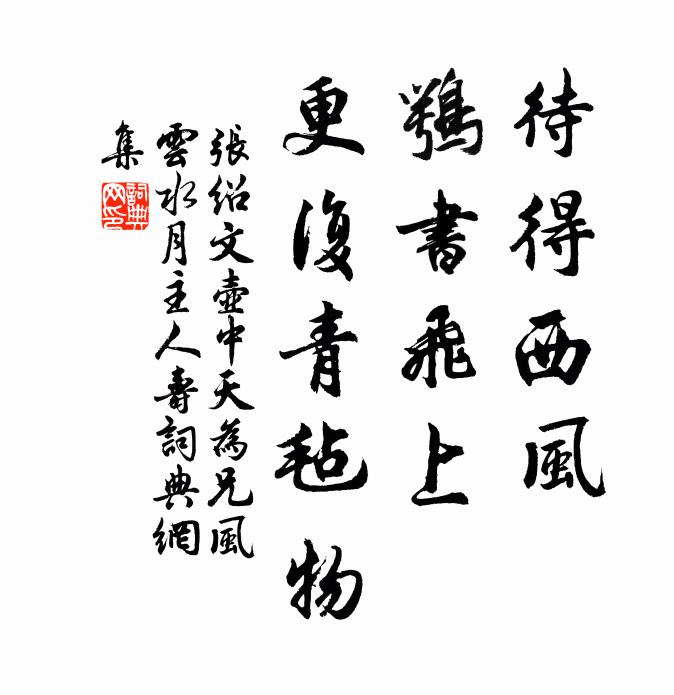 待得西風
鶚書飛上
更復青毡物
張紹文壺中天為兄風
雲水月主人壽詞典網
集
詞典
网印